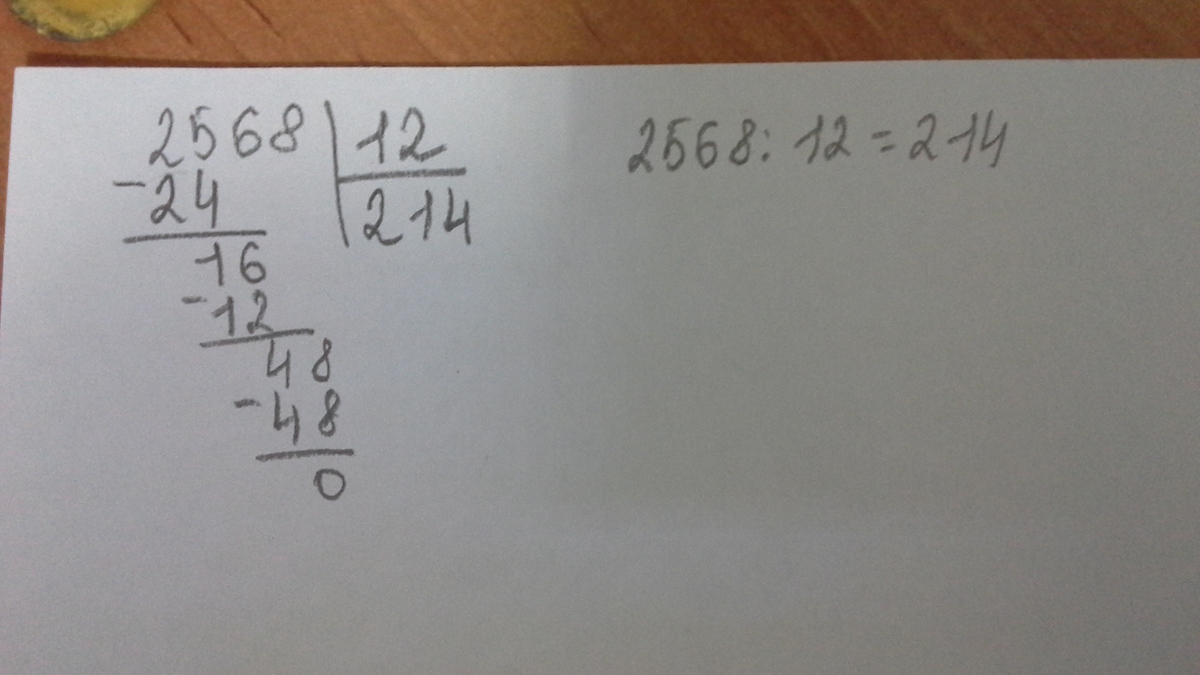 2568 | 12
-24 | 214
16
-12
48
-48
0
2568 : 12 = 214